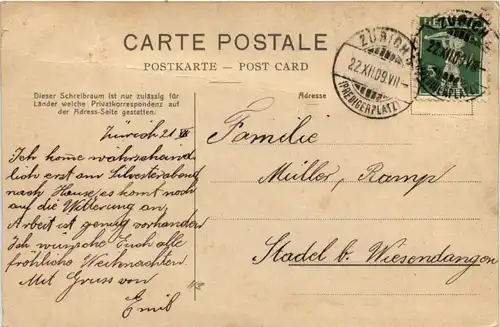 CARTE POSTALE
POSTKARTE - POST CARD
Dieser Schreibraum ist nur zulässig für
Länder welche Privatkorrespondenz auf
der Adress-Seite gestatten.
Adresse
ZÜRICH
22.XII.09.VII-
(PREDIGERPLATZ)
ZÜRICH
22.XII.09.VII-
Zürich 21 XII
Ich kome wahrscheind
lich erst am Silvesterabend
nach Hause, es komt noch
auf die Witterung an,
Arbeit ist genug vorhanden
Ich wünsche Euch alle
fröhliche Weihnachten
Mit Gruss von
Emil
Familie
Müller, Ramp
Stadel b. Wiesendangen